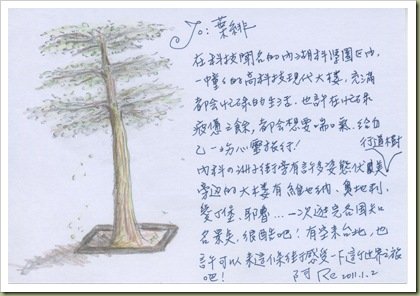 To: 葉緋
在科技聞名的內湖科學園區內,
一幢幢的高科技現代大樓,充滿
都會忙碌的生活,也許在忙碌
疲憊之餘,都會想要喘口氣,給自
己一場心靈旅行!
行道樹
內科の洲子街旁有許多姿態優美
旁邊的大樓有維也納、奧地利、
愛丁堡、耶魯…一次逛完各國知
名景點,很酷吧!有空來台北,也
許可以來這條街感受一下這世界之旅
吧! 阿Re 2011.1.2